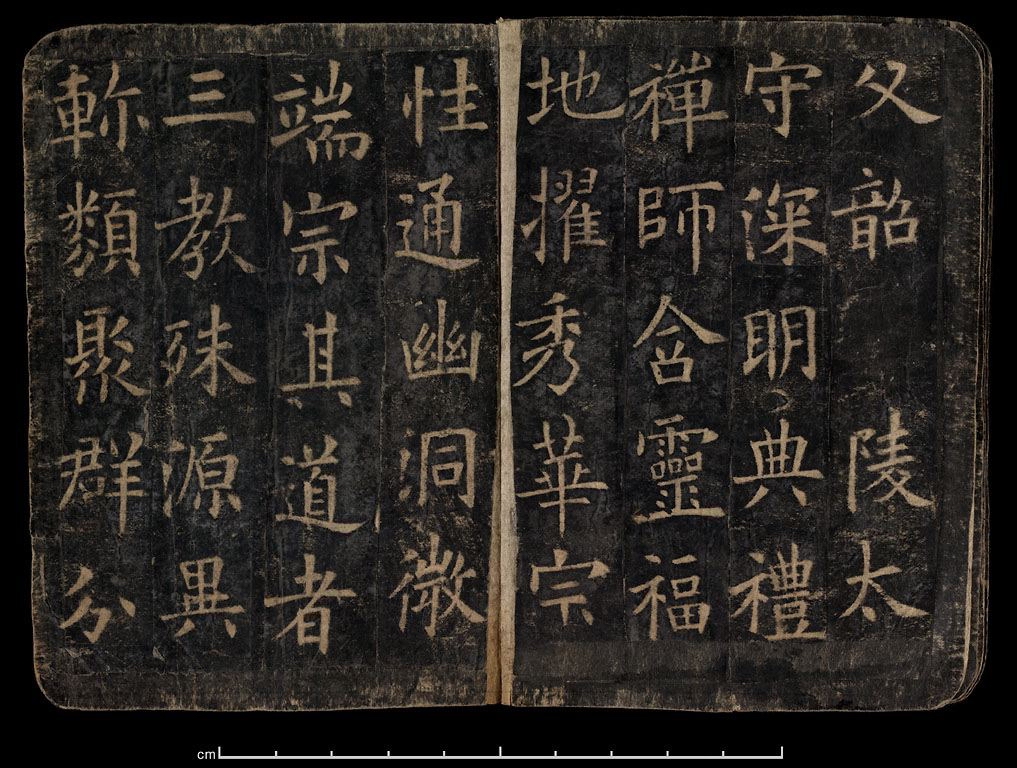 父韶陵太
守深明典禮
禪師含靈福
地擢秀華宗
性通幽洞微
端宗其道者
三教殊源異
軫類聚群分
cm